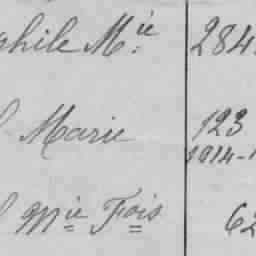 ahile Mie 284
Marie 123
1914-1
Mie Fois 62